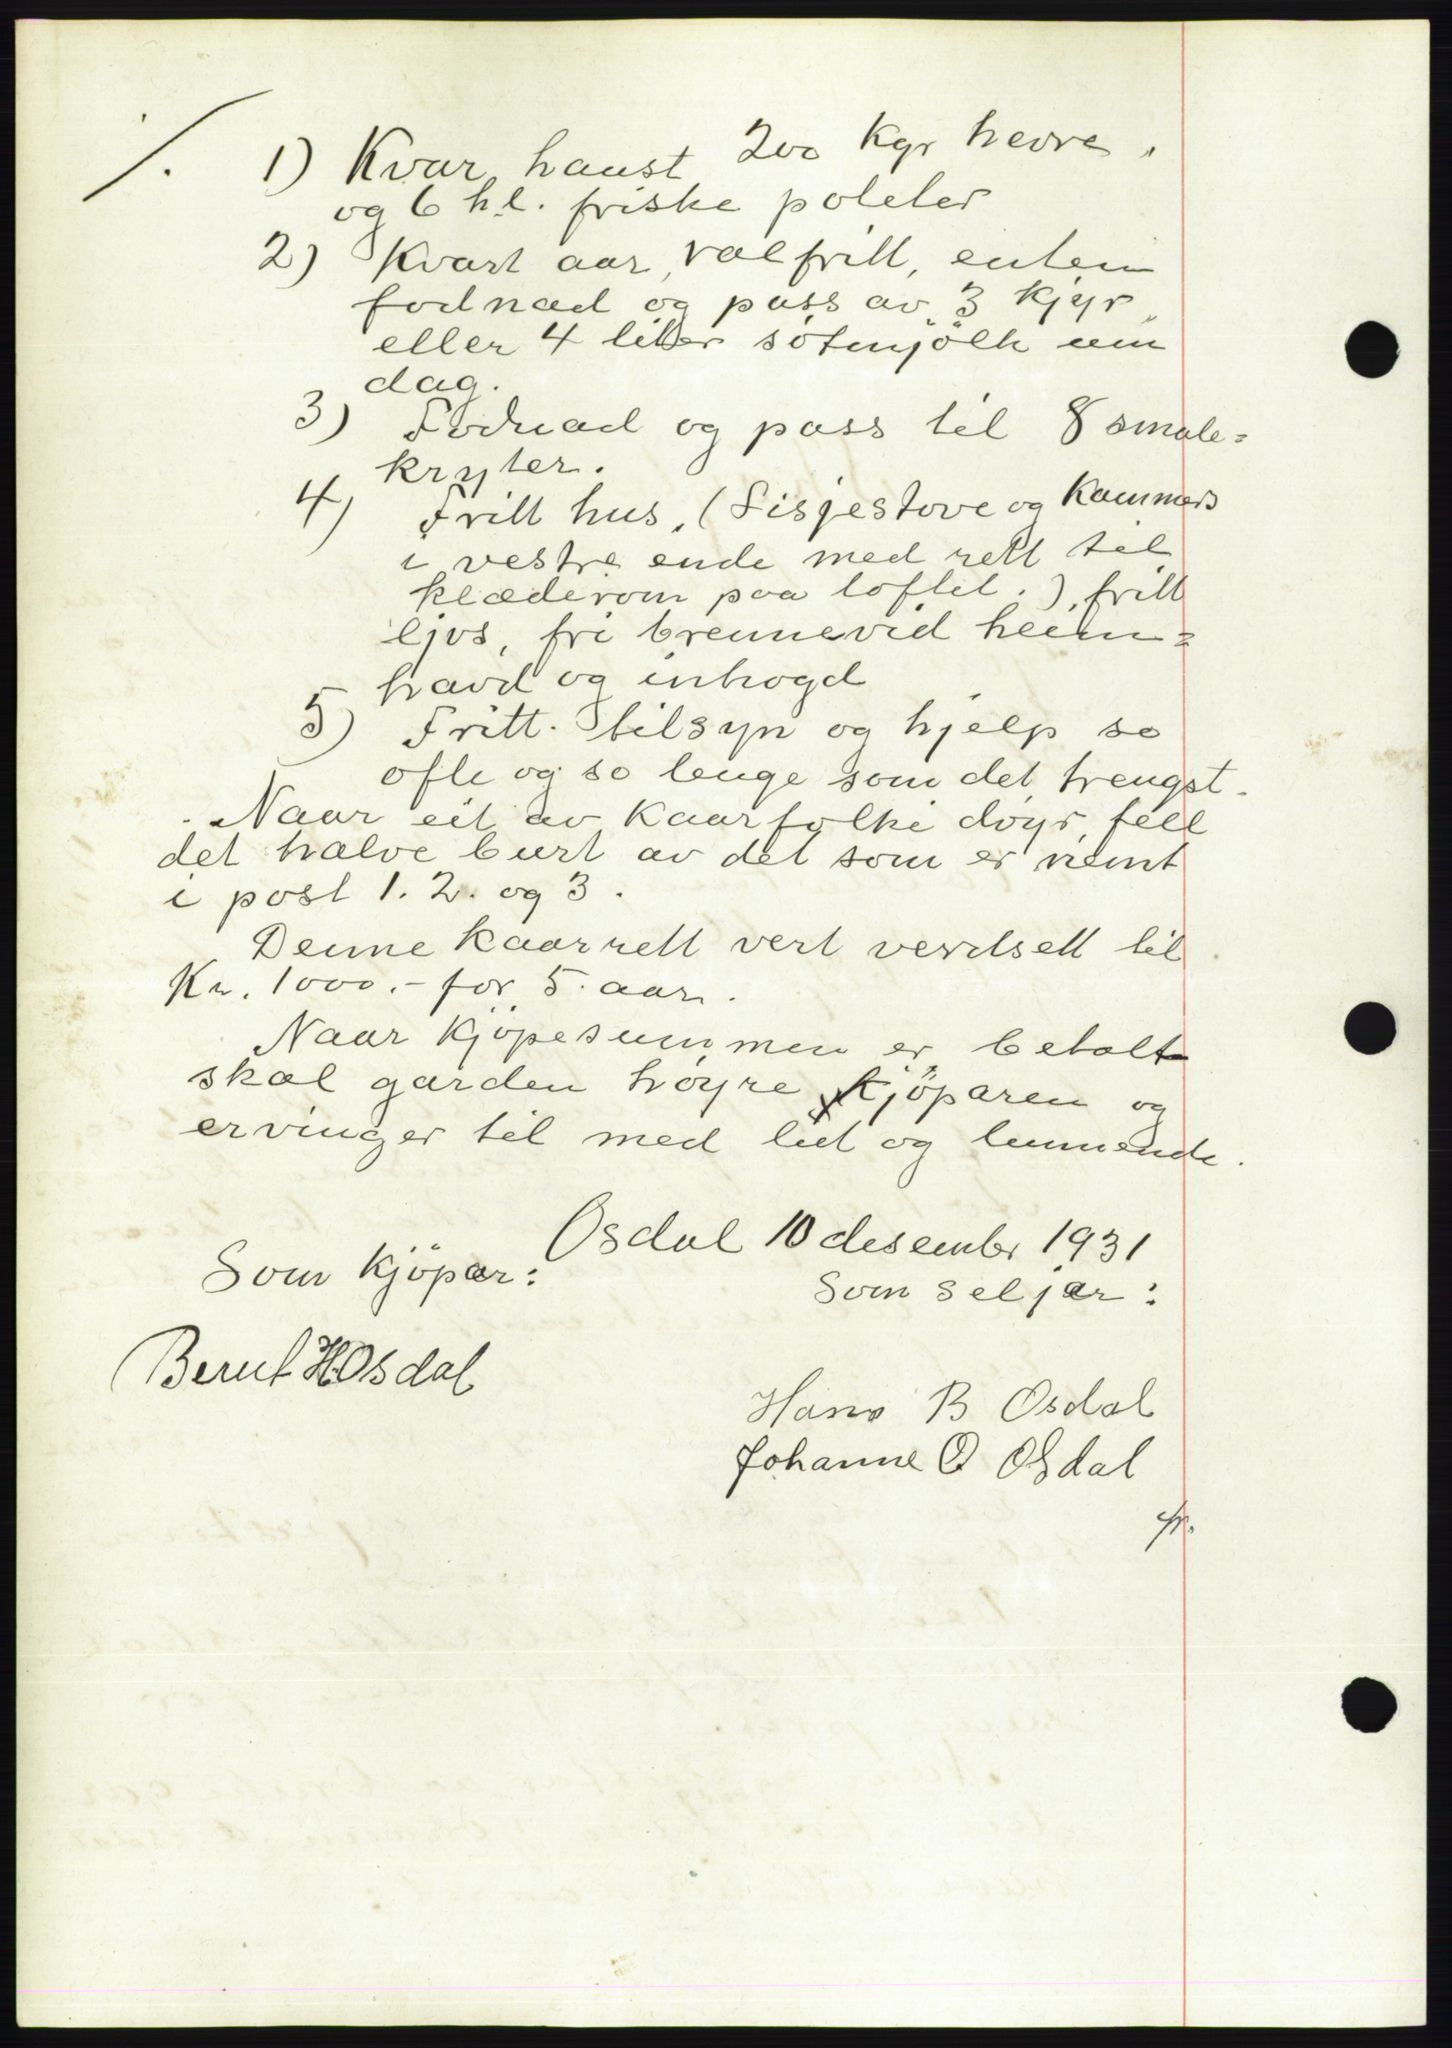 ./.
1) Kvar haust 200 Kgr havre,
og 6 hl. friske poteter
2) Kvart aar, valfritt, enten
fodnad og pass av 3 kjyr,
eller 4 liter sötmjölk um
dag.
3) Fodnad og pass til 8 smale=
kryter.
4) Fritt hus, (Sisjestove og Kammers
i vestre ende med rett til
klæderom paa loftet.), fritt
ljos, fri brennevid heim=
havd og inhogd
5) Fritt tilsyn og hjelp so
ofte og so lenge som det trengst.
Naar eit av Kaarfolki döyr, fell
det halve burt av det som er nemt
i post 1. 2. og 3.
Denne kaarrett vert verdsett til
Kr. 1000.- for 5 aar.
Naar Kjöpesummen er betalt
skal garden höyre Kjöparen og
ervinger til med lut og lunnende.
Osdal 10 desember 1931
Som Kjöpar:
Som seljar:
Bernt H Osdal
Hans B Osdal
Johanne O Osdal